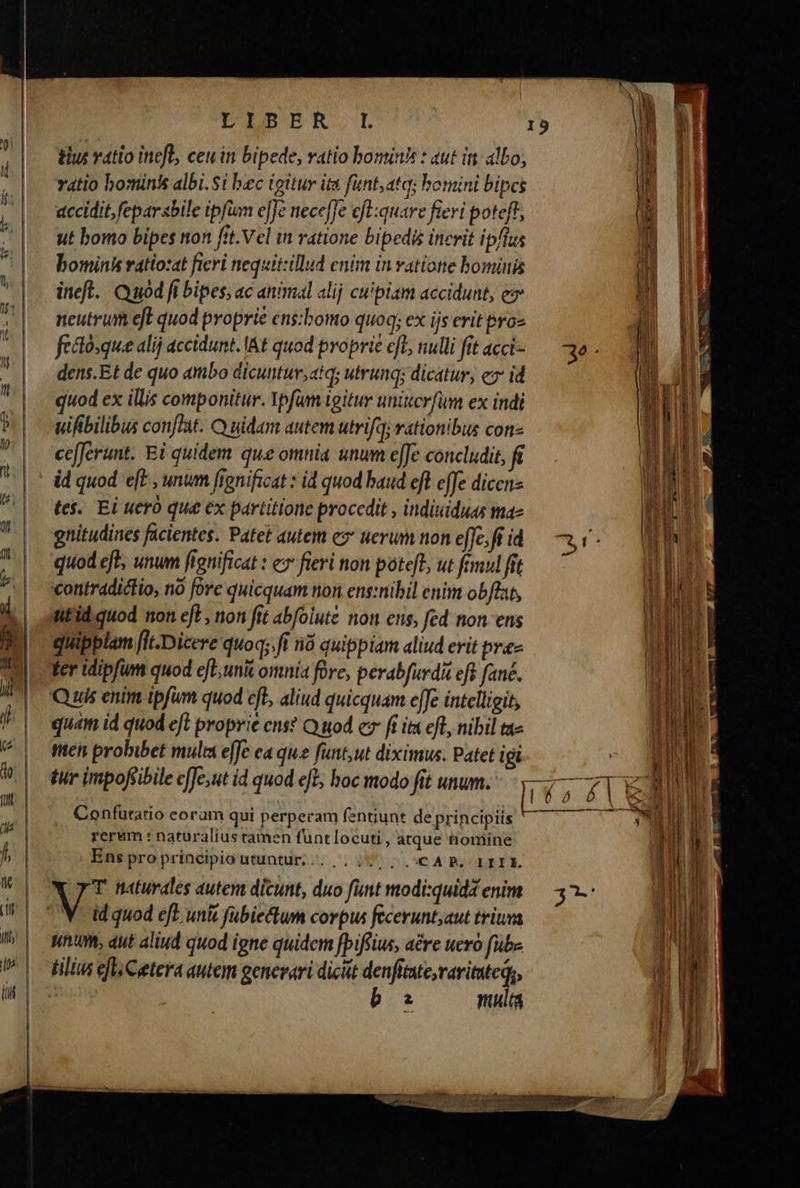 LIBER I. 19
tius ratio inest, ceu in bipede, ratio hominis : aut in albo,
ratio hominis albi. Si hæc igitur ita sunt, atq; homini bipes
accidit, separabile ipsum esse necesse est: quare fieri potest,
ut homo bipes non sit. Vel in ratione bipedis inerit ipsius
hominis ratio: at fieri nequit: illud enim in ratione hominis
inest. Quòd si bipes, ac animal alij cuipiam accidunt, &
neutrum est quod propriè ens: homo quoq; ex ijs erit pro=
fectò, quæ alij accidunt. At quod propriè est, nulli sit acci- 30.
dens. Et de quo ambo dicuntur, atq; utrunq; dicatur, & id
quod ex illis componitur. Ipsum igitur uniuersum ex indi
uisibilibus constat. Quidam autem utrisq; rationibus con=
cesserunt. Ei quidem quæ omnia unum esse concludit, si
id quod est, unum significat : id quod haud est esse dicen=
tes. Ei uerò quæ ex partitione procedit, indiuiduas ma=
gnitudines facientes. Patet autem & uerum non esse, si id 31.
quod est, unum significat : & fieri non potest, ut simul sit
contradictio, nō fore quicquam non ens: nihil enim obstat,
ut id quod non est, non sit absolutè non ens, sed non ens
quippiam sit. Dicere quoq;, si nō quippiam aliud erit præ=
ter idipsum quod est, unū omnia fore, perabsurdū est sanè.
Quis enim ipsum quod est, aliud quicquam esse intelligit,
quàm id quod est propriè ens? Quod & si ita est, nihil ta=
men prohibet multa esse ea quæ sunt, ut diximus. Patet igi
tur impossibile esse, ut id quod est, hoc modo sit unum.
Confutatio eorum qui perperam sentiunt de principiis
rerum : naturalius tamen sunt locuti, atque nomine
Ens pro principio utuntur. CAP. IIII.
VT naturales autem dicunt, duo sunt modi: quidā enim 32.
id quod est unū subiectum corpus fecerunt, aut trium
unum, aut aliud quod igne quidem spissius, aëre uerò sub=
tilius est. Cætera autem generari dicūt densitate, raritateq;,
b 2 multa